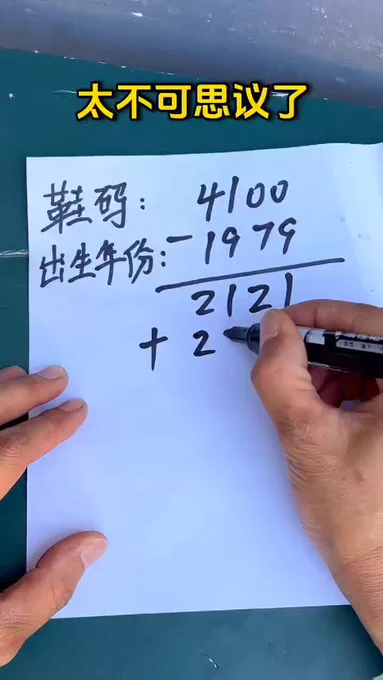 太不可思议了
鞋码: 4100
出生年份: -1979
2121
+ 2